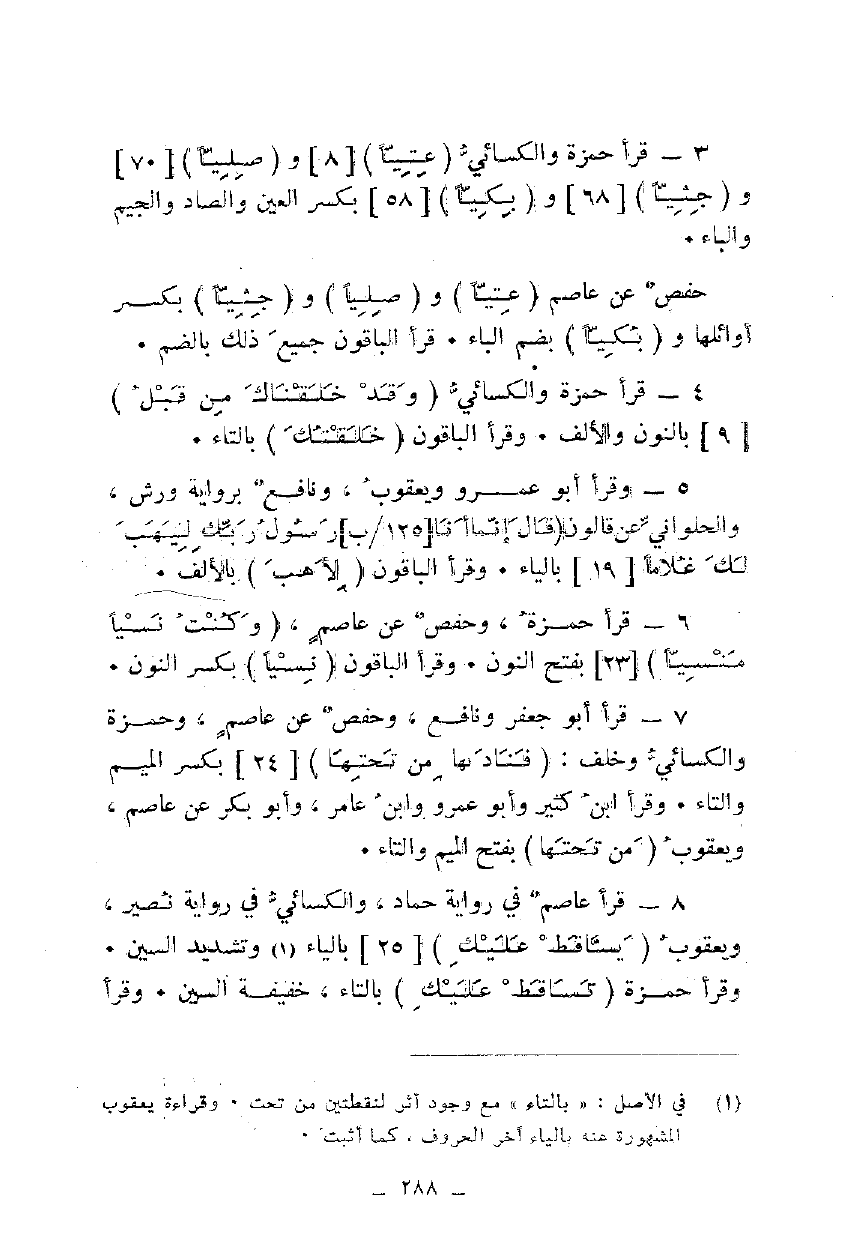 ٣ ــ قرأ حمزة والكسائيُّ ( عِتِيّاً ) [ ٨ ] و ( صِلِيّاً ) [ ٧٠ ]
و ( جِثِيّاً ) [ ٦٨ ] و ( بِكِيّاً ) [ ٥٨ ] بكسر العين والصاد والجيم
والباء ٠
حفصٌ عن عاصم ( عِتِيّاً ) و ( صِلِياً ) و ( جِثِيّاً ) بكسر
أوائلها و ( بُكِيّاً ) بضم الباء ٠ قرأ الباقون جميعَ ذلك بالضم ٠
٤ ــ قرأ حمزة والكسائيُّ ( وَقَدْ خَلَقْنَاكَ مِن قَبْلُ )
[ ٩ ] بالنون والألف ٠ وقرأ الباقون ( خَلَقْتُكَ ) بالتاء ٠
٥ ــ وقرأ أبو عمرو ويعقوبُ ، ونافعٌ برواية ورش ،
والحلوانيُّ عن قالون ( قَالَ إِنَّمَا أَنَا [١٢٥/ب] رَسُولُ رَبِّكِ لِيَهَبَ
لَكِ غُلَاماً [ ١٩ ] بالياء ٠ وقرأ الباقون ( لِأَهَبَ ) بالألف ٠
٦ ــ قرأ حمزةُ ، وحفصٌ عن عاصمٍ ، ( وَكُنْتُ نَسْياً
مَنْسِيّاً ) [٢٣] بفتح النون ٠ وقرأ الباقون ( نِسْياً ) بكسر النون ٠
٧ ــ قرأ أبو جعفر ونافع ، وحفصٌ عن عاصمٍ ، وحمزة
والكسائيُّ وخلف : ( فَنَادَىهَا مِن تَحتِهَا ) [ ٢٤ ] بكسر الميم
والتاء ٠ وقرأ ابنُ كثير وأبو عمرو وابنُ عامر ، وأبو بكر عن عاصم ،
ويعقوبُ ( مَن تَحتَهَا ) بفتح الميم والتاء ٠
٨ ــ قرأ عاصمٌ في رواية حماد ، والكسائيُّ في رواية نُصير ،
ويعقوبُ ( يَسَّاقَطْ عَلَيْكِ ) [ ٢٥ ] بالياء (١) وتشديد السين ٠
وقرأ حمزة ( تَسَاقَطْ عَلَيْكِ ) بالتاء ، خفيفة السين ٠ وقرأ
(١) في الأصل : « بالتاء » مع وجود أثر لنقطتين من تحت ٠ وقراءة يعقوب
المشهورة عنه بالياء آخر الحروف ، كما أثبتَ ٠
ــ ٢٨٨ ــ